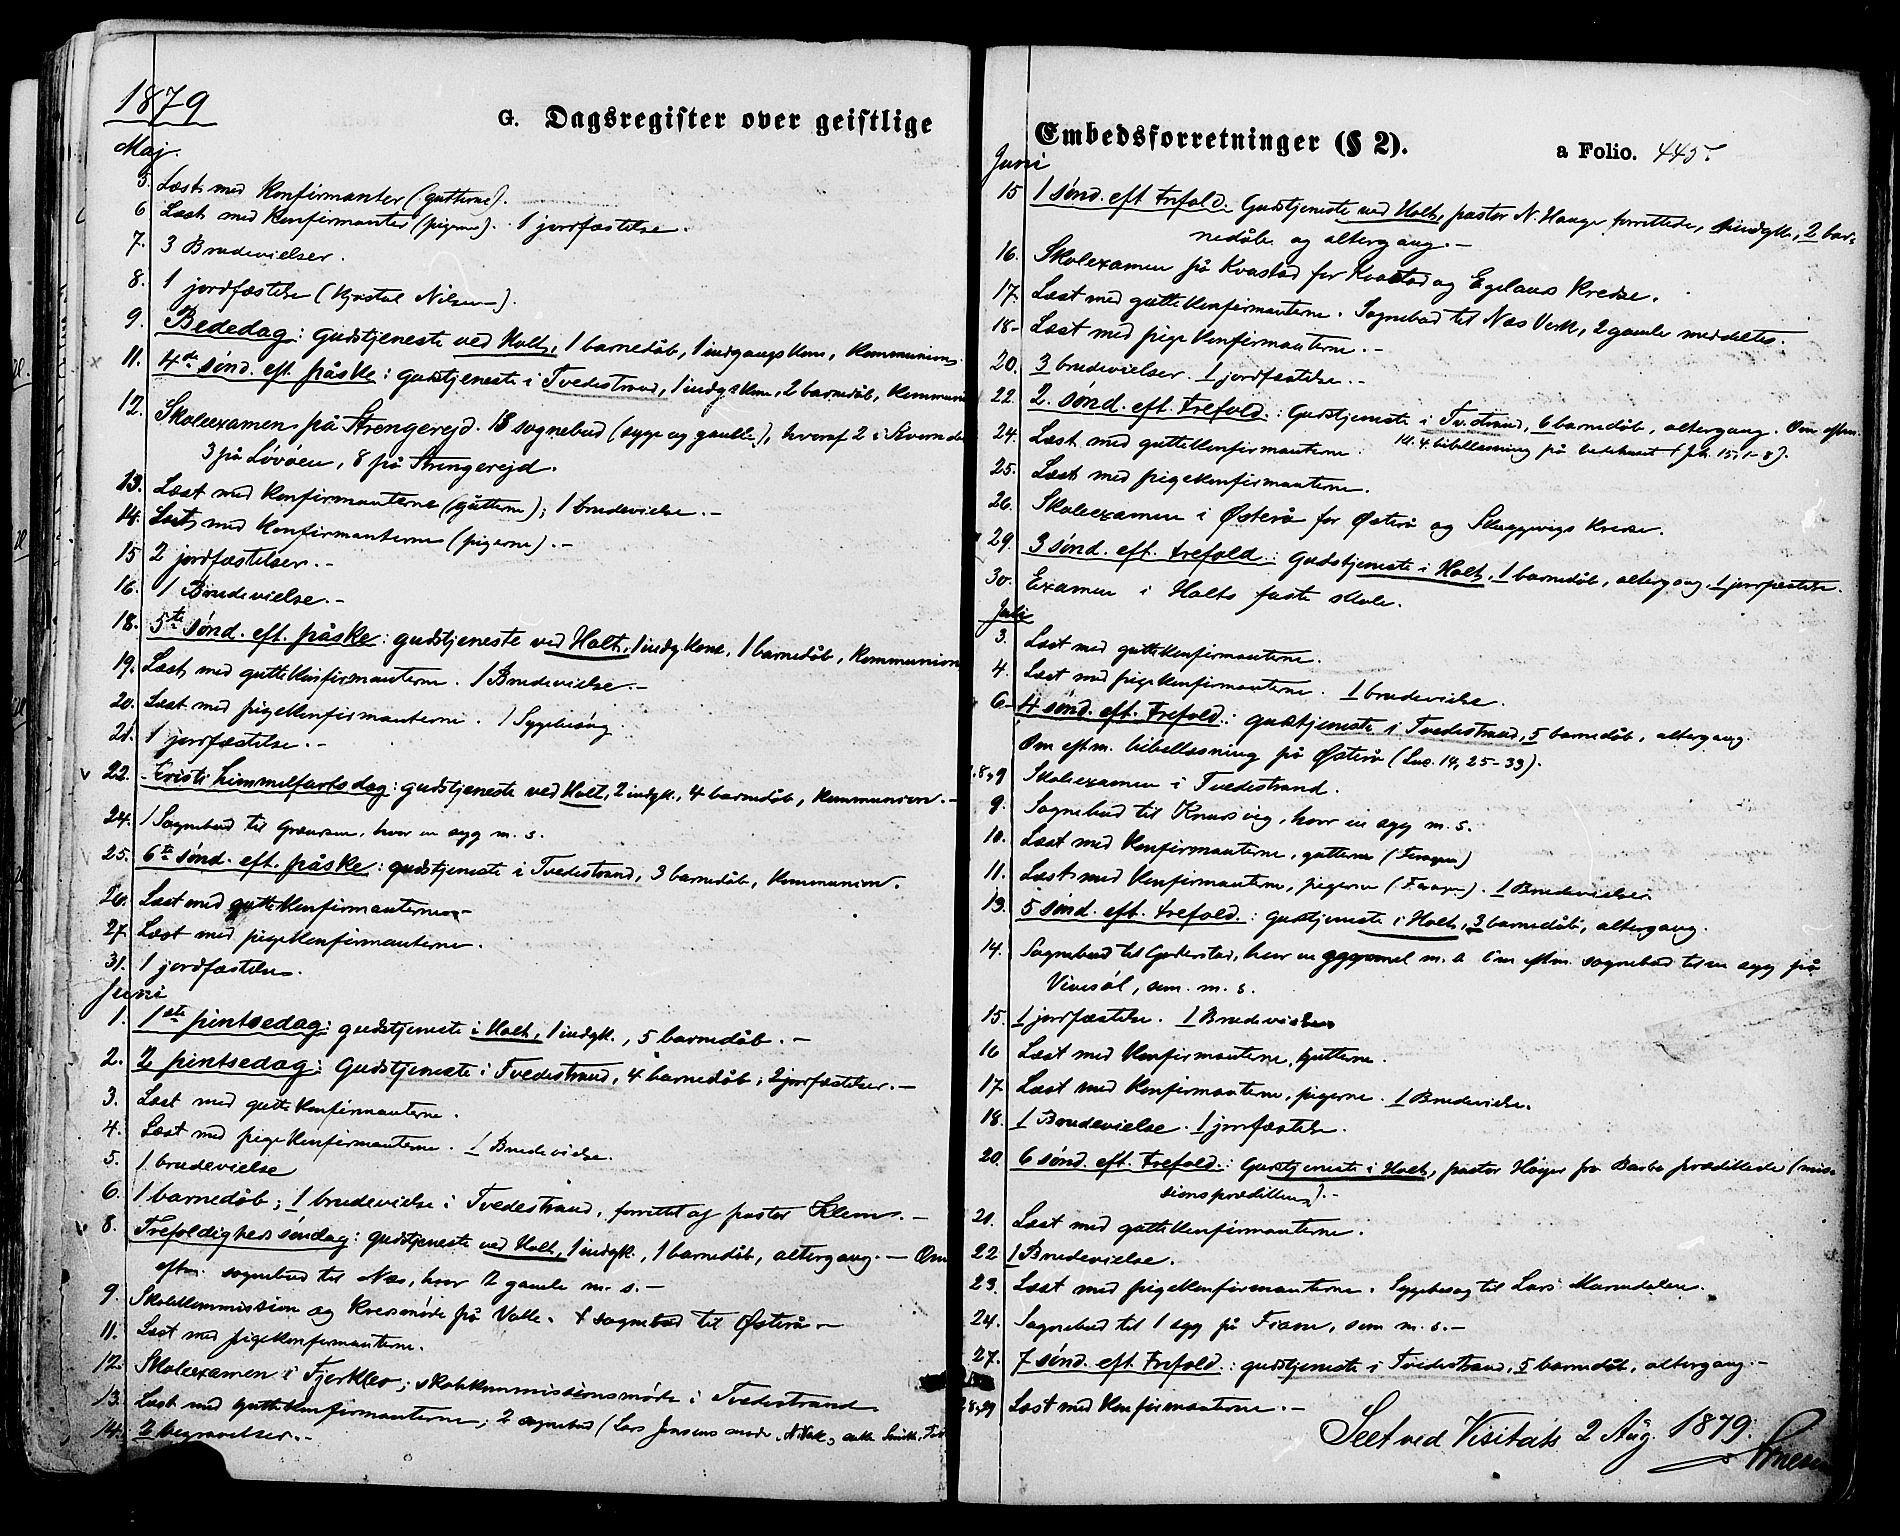 1879
G. Dagsregister over geistlige
Maj.
5. Læst med Konfirmanter (gutterne).
6 Læst med Konfirmanter (pigerne). 1 jordfæstelse.
7. 3 Brudevielser.
8. 1 jordfæstelse (Kristal Nilsen).
9. Bededag: gudstjeneste ved Holt, 1 barnedåb, 1 indgangskone, Kommunion
11. 4de sønd. eft. påske: gudstjeneste i Tvedestrand, 1 indg.kone, 2 barnedåb, Kommun
12. Skoleexamen på Strengerejd. 18 sognebud (syge og gamle), hvoraf 2 i
3 på Løvøen, 8 på Strengerejd.
13. Læst med Konfirmanterne (gutterne); 1 brudevielse.-
14. Læst med Konfirmanterne (pigerne).-
15 2 jordfæstelser.-
16. 1 Brudevielse.-
18. 5te sønd. eft. påske: gudstjeneste ved Holt, 1 indg.kone, 1 barnedåb, Kommunion
19. Læst med gutteKonfirmanterne. 1 Brudevielse.-
20. Læst med pigeKonfirmanterne. 1 Sygebesøg.
21. 1 jordfæstelse.-
22. Kristi himmelfartsdag: gudstjeneste ved Holt, 2 indgk., 4 barnedåb, Kommunion.-
24. 1 Sognebud til, hvor en syg m. s.
25. 6te sønd. eft. påske: gudstjeneste i Tvedestrand, 3 barnedåb, Kommunion.
26. Læst med gutteKonfirmanterne
27. Læst med pigeKonfirmanterne.
31. 1 jordfæstelse.
Juni
1. 1ste pintsedag: gudstjeneste i Holt, 1 indgk., 5 barnedåb.-
2. 2 pintsedag: Gudstjeneste i Tvedestrand, 4 barnedåb, 2 jordfæstelser.-
3. Læst med gutteKonfirmanterne.
4. Læst med pigeKonfirmanterne. 1 Brudevielse.
5. 1 brudevielse
6. 1 barnedåb; 1 brudevielse i Tvedestrand, forrettet af pastor Klem.-
8. Trefoldigheds søndag: gudstjeneste ved Holt, 1 indgk., 1 barnedåb, altergang.- Om
eftm. sognebud til Næs, hvor 2 gamle m. s.-
9. Skolekommission og Kredsmøde på Valle. 1 sognebud til Østerå.-
11. Læst med pigeKonfirmanterne.
12. Skoleexamen i Fjerkleo; skolekommissionsmøde i Tvedestrand.
13. Læst med gutteKonfirmanterne; 2 sognebud (Lars Jensens moder,
14. 2 begravelser.-
Embedsforretninger (§ 2).
a Folio. 445.
Juni
15 1 sønd. eft. trefold. Gudstjeneste ved Holt, pastor N. Hauge forrettede, 1 indgk., 2 bar-
nedåb og altergang.-
16. Skolexamen på Kvastad for Kvastad og Egelans Kredse.
17. Læst med gutteKonfirmanterne. Sognebud til Næs Verk, 2 gamle meddeltes.
18- Læst med pigeKonfirmanterne.-
20. 3 brudevielser. 1 jordfæstelse.-
22. 2. sønd. eft. trefold.: Gudstjeneste i Tv.strand, 6 barnedåb, altergang. Om eftm.
Kl. 4. bibellæsning på bedehuset (Joh. 15, 1-8).
24. Læst med gutteKonfirmanterne.
25. Læst med pigeKonfirmanterne.
26. Skoleexamen i Østerå for Østerå og Skuggevigs Kredse.
29. 3 sønd. eft. trefold.: gudstjeneste i Holt, 1 barnedåb, altergang. 1 jordfæstelse.
30. Examen i Holts faste skole.
Juli
3. Læst med gutteKonfirmanterne.
4. Læst med pigeKonfirmanterne. 1 brudevielse.
6- 4 sønd. eft. Trefold.: gudstjeneste i Tvedestrand, 5 barnedåb, altergang.
Om eftm. bibellæsning på Østerå (Luc. 14, 25-33).
8, 9 Skoleexamen i Tvedestrand.
9. Sognebud til Knarsvig, hvor en syg m. s.
10. Læst med Konfirmanterne, gutterne
11. Læst med Konfirmanterne, pigerne. 1 Brudevielse.
13. 5 sønd. eft. trefold.: gudstjeneste i Holt, 3 barnedåb, altergang.
14. Sognebud til Goderstad, hvor en gammel m. s. Om eftm. sognebud til en syg på
Vivesøl, som m. s.
15. 1 jordfæstelse. 1 Brudevielse
16 Læst med Konfirmanterne, gutterne.
17. Læst med Konfirmanterne, pigerne. 1 Brudevielse.
18. 1 Brudevielse. 1 jordfæstelse.
20. 6 sønd. eft. Trefold.: Gudstjeneste i Holt, pastor Høyer fra Barbo prædikede (mis-
sionsprædiken).-
21. Læst med gutteKonfirmanterne.
22 1 Brudevielse.
23. Læst med pigeKonfirmanterne. Sygebesøg til Lars Marndalen.
24. Sognebud til 1 syg på Fiane, som m. s.-
27. 7 sønd. eft. Trefold.: gudstjeneste i Tvedestrand, 5 barnedåb, altergang.-
28, 29 Læst med Konfirmanterne.-
Seet ved Visitats 2 Aug. 1879.